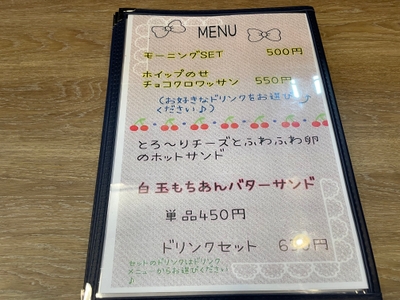 MENU
モーニングSET 500円
ホイップのせ
チョコクロワッサン 550円
(お好きなドリンクをお選び
ください♪)
とろ〜りチーズとふわふわ卵
のホットサンド
白玉もちあんバターサンド
単品450円
ドリンクセット 円
セットのドリンクはドリンク
メニューからお選びください
♪